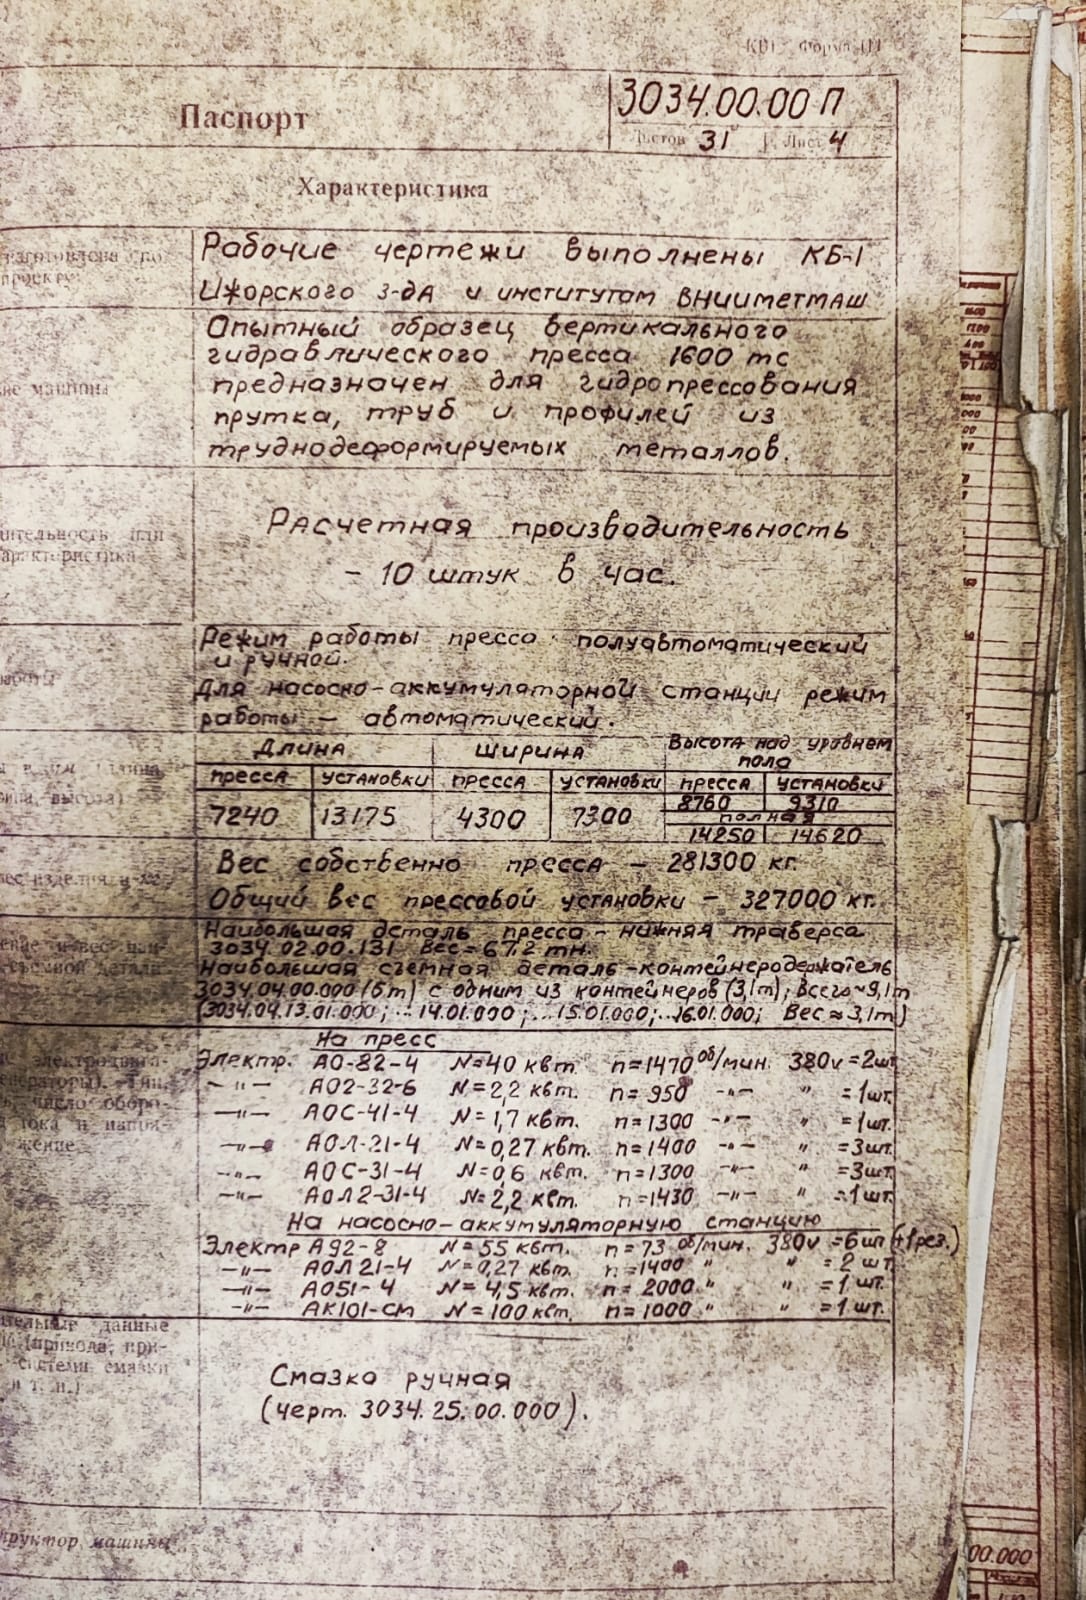 КБ1 Форма
Паспорт
3034.00.00 П
Листов 31 Лист 4
Характеристика
изготовлена по
проекту
Рабочие чертежи выполнены КБ-1
Ижорского з-да и институтом ВНИИМЕТМАШ
машины
Опытный образец вертикального
гидравлического пресса 1600 тс
предназначен для гидропрессования
прутка, труб и профилей из
труднодеформируемых металлов.
или
характеристика
Расчетная производительность
- 10 штук в час.
работы
Режим работы пресса полуавтоматический
и ручной.
Для насосно-аккумуляторной станции режим
работы - автоматический.
длина
высота)
Длина Ширина Высота над уровнем
пола
пресса установки пресса установки пресса установки
7240 13175 4300 7300 8760 9310
полная
14250 14620
вес изделия
Вес собственно пресса - 281300 кг.
Общий вес прессовой установки - 327000 кг.
и вес
детали
Наибольшая деталь пресса - нижняя траверса
3034.02.00.131 Вес = 67,2 тн.
Наибольшая съемная деталь - контейнеродержатель
3034.04.00.000 (6т) с одним из контейнеров (3,1т); Всего ~9,1т
(3034.04.13.01.000; ...14.01.000; ...15.01.000; ...16.01.000; Вес ≈ 3,1т)
число оборо-
тока и
На пресс
Электр. АО-82-4 N=40 квт. n=1470 об/мин. 380v =2шт
-"- АО2-32-6 N=2,2 квт. n=950 -"- " =1шт.
-"- АОС-41-4 N=1,7 квт. n=1300 -"- " =1шт.
-"- АОЛ-21-4 N=0,27 квт. n=1400 -"- " =3шт.
-"- АОС-31-4 N=0,6 квт. n=1300 -"- " =3шт.
-"- АОЛ2-31-4 N=2,2 квт. n=1430 -"- " =1шт.
На насосно-аккумуляторную станцию
Электр А92-8 N=55 квт. n=73 об/мин. 380v =6шт (+1рез.)
-"- АОЛ21-4 N=0,27 квт. n=1400 " " =2 шт.
-"- АО51-4 N=4,5 квт. n=2000 " " =1 шт.
-"- АК101-СМ N=100 квт. n=1000 " " =1 шт.
данные
системы смазки
и т. п.)
Смазка ручная
(черт. 3034.25.00.000).
машины
00.000